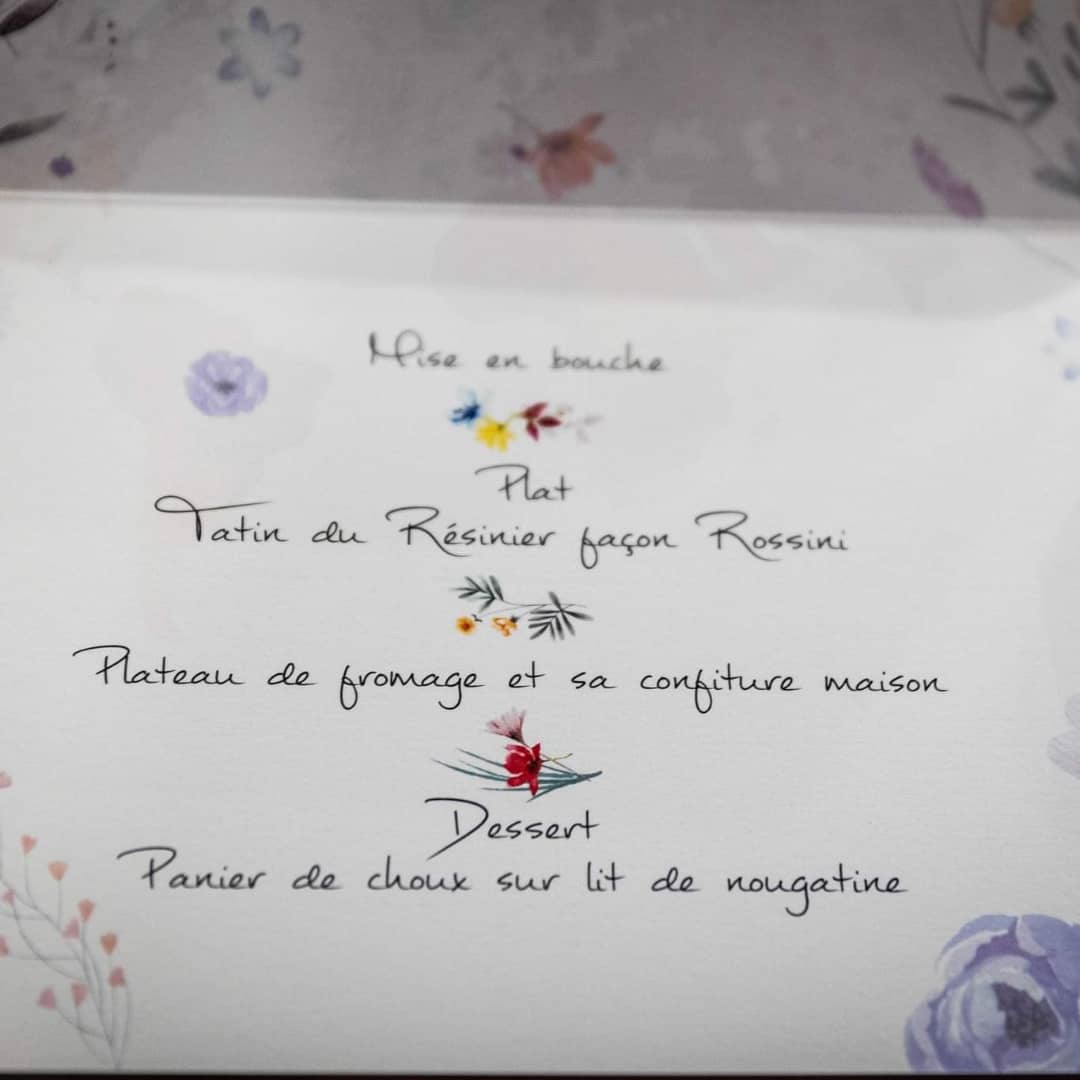 Mise en bouche
Plat
Tatin du Résinier façon Rossini
Plateau de fromage et sa confiture maison
Dessert
Panier de choux sur lit de nougatine